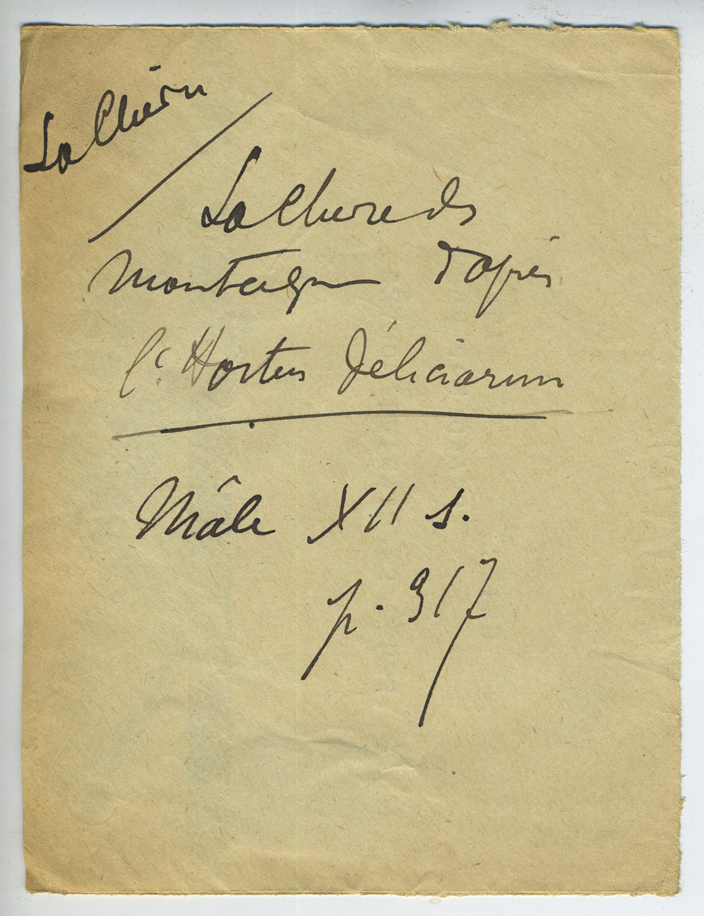 La Chèvre
La Chèvre des
Montagnes d'après
l'Hortus Déliciarum
Mâle XII s.
p. 317